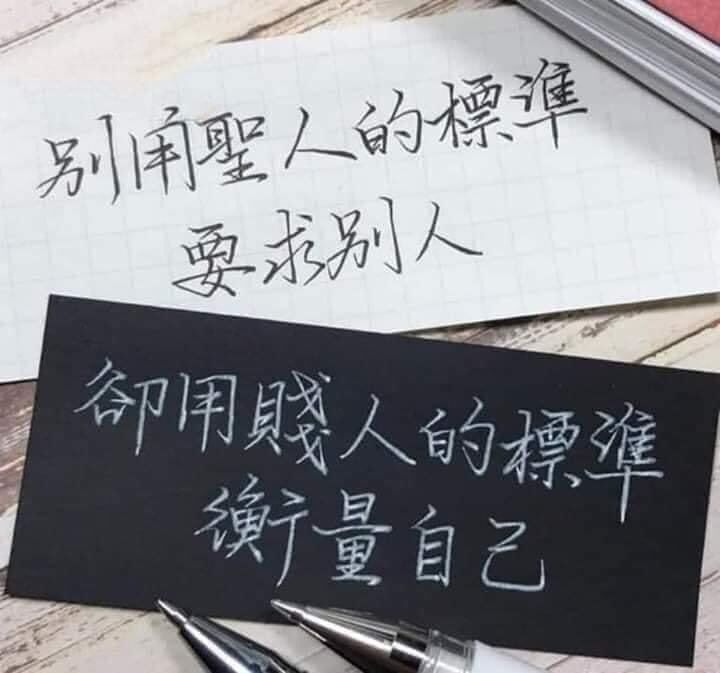 別用聖人的標準
要求別人
卻用賤人的標準
衡量自己